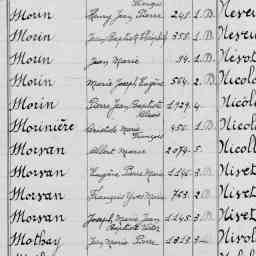 Morin Henry Jean Pierre 248. 1. B. Neveu
Morin Jean Baptiste 358. 1. B. Neveu
Morin Jean Marie 94. 1. B. Névot
Morin Marie Joseph Eugène 564. 2. B. Nicol
Morin Pierre Jean Baptiste 1729. 4. Nicol
Morinière Aristide Marie François 456. 1. B. Nicoll
Morvan Albert Marie 2074. 5. Nicoll
Morvan Eugène Pierre Marie 1146. 3. B. Nivet
Morvan François Yves Marie 763. 2. B. Nivet
Morvan Joseph Marie Jean Baptiste 1145. 3. B. Nivet
Mothay Jean Marie Pierre 1313. 3. Nivol